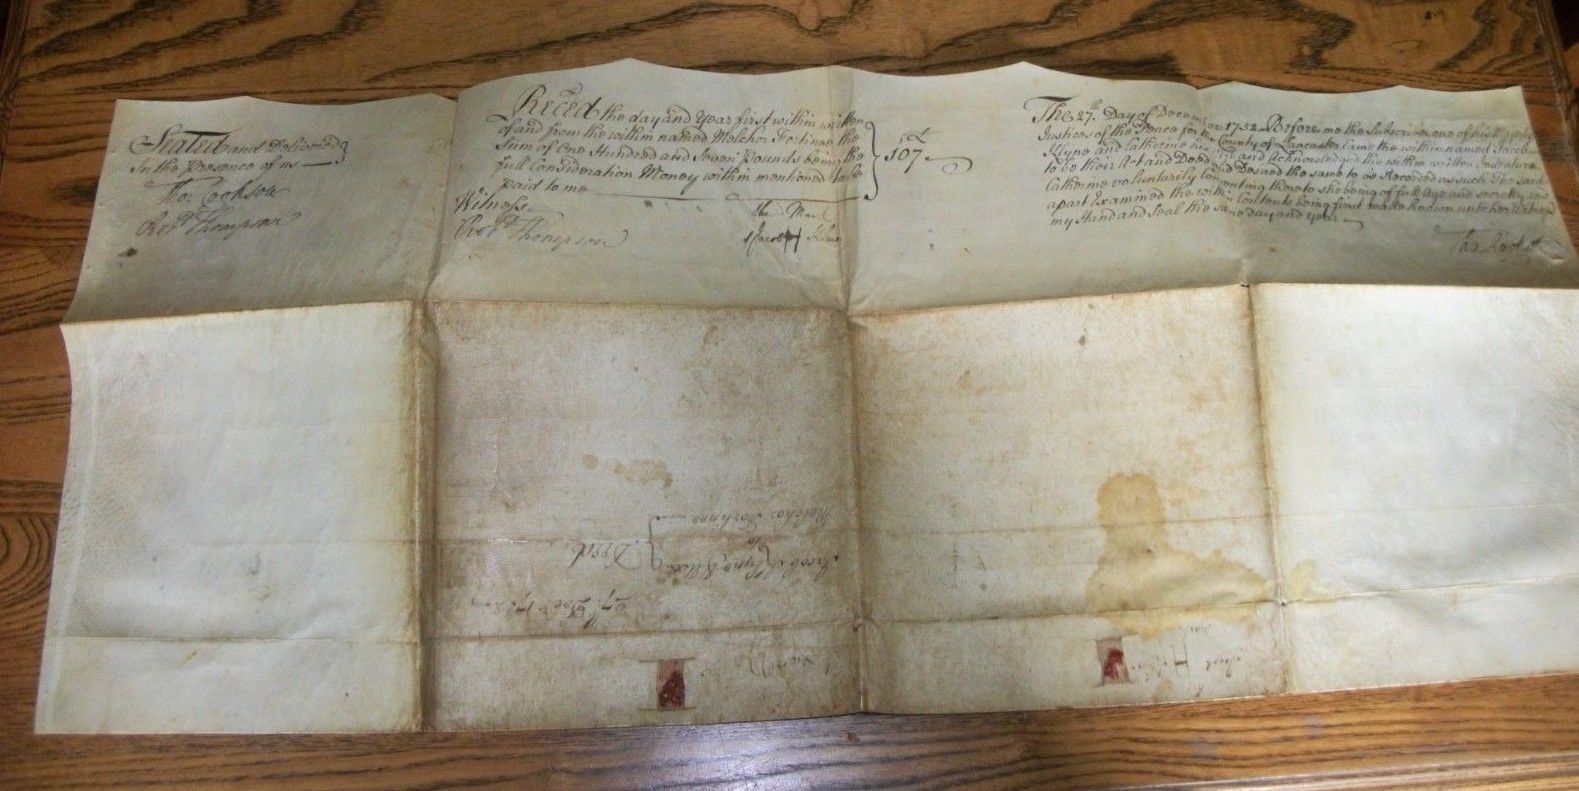 Sealed and Delivered
In the Presence of us
Tho.s Cookson
Rob.t Thompson
Reced the day and Year first within written
of and from the within named Melchor Fortinee the
Sum of One Hundred and Seven Pounds being the
full Consideration Money within mentioned to be
paid to me
Witness
Rob.t Thompson
the Mark
Jacob H
107
The 27.th Day of December 1752. Before me the Subscriber one of his
Justices of the Peace for the County of Lancaster Came the within named Jacob
Klyne and Catherine his and Acknowledged the within written Indenture
to be their Act and Deed and Desired the same to be Recorded as such The said
Catherine voluntarily Consenting thereto she being of full Age and secretly and
apart Examined the within Contents being first made known unto her Witness
my Hand and Seal the same day and Year
Deed
Jacob Klyne & Uxor
to
Melchor